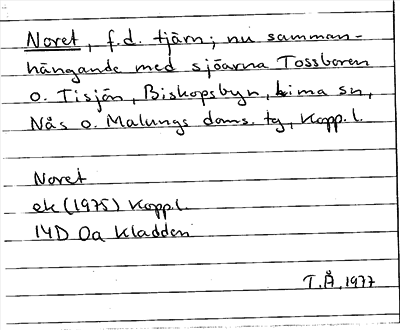 Noret, f.d. tjärn; nu samman-
hängande med sjöarna Tossboren
o. Tisjön, Biskopsbyn, Lima sn,
Nås o. Malungs doms. tg, Kopp. l.
Noret
ek (1975) Kopp l.
14D 0a Kladden
T.Å. 1977